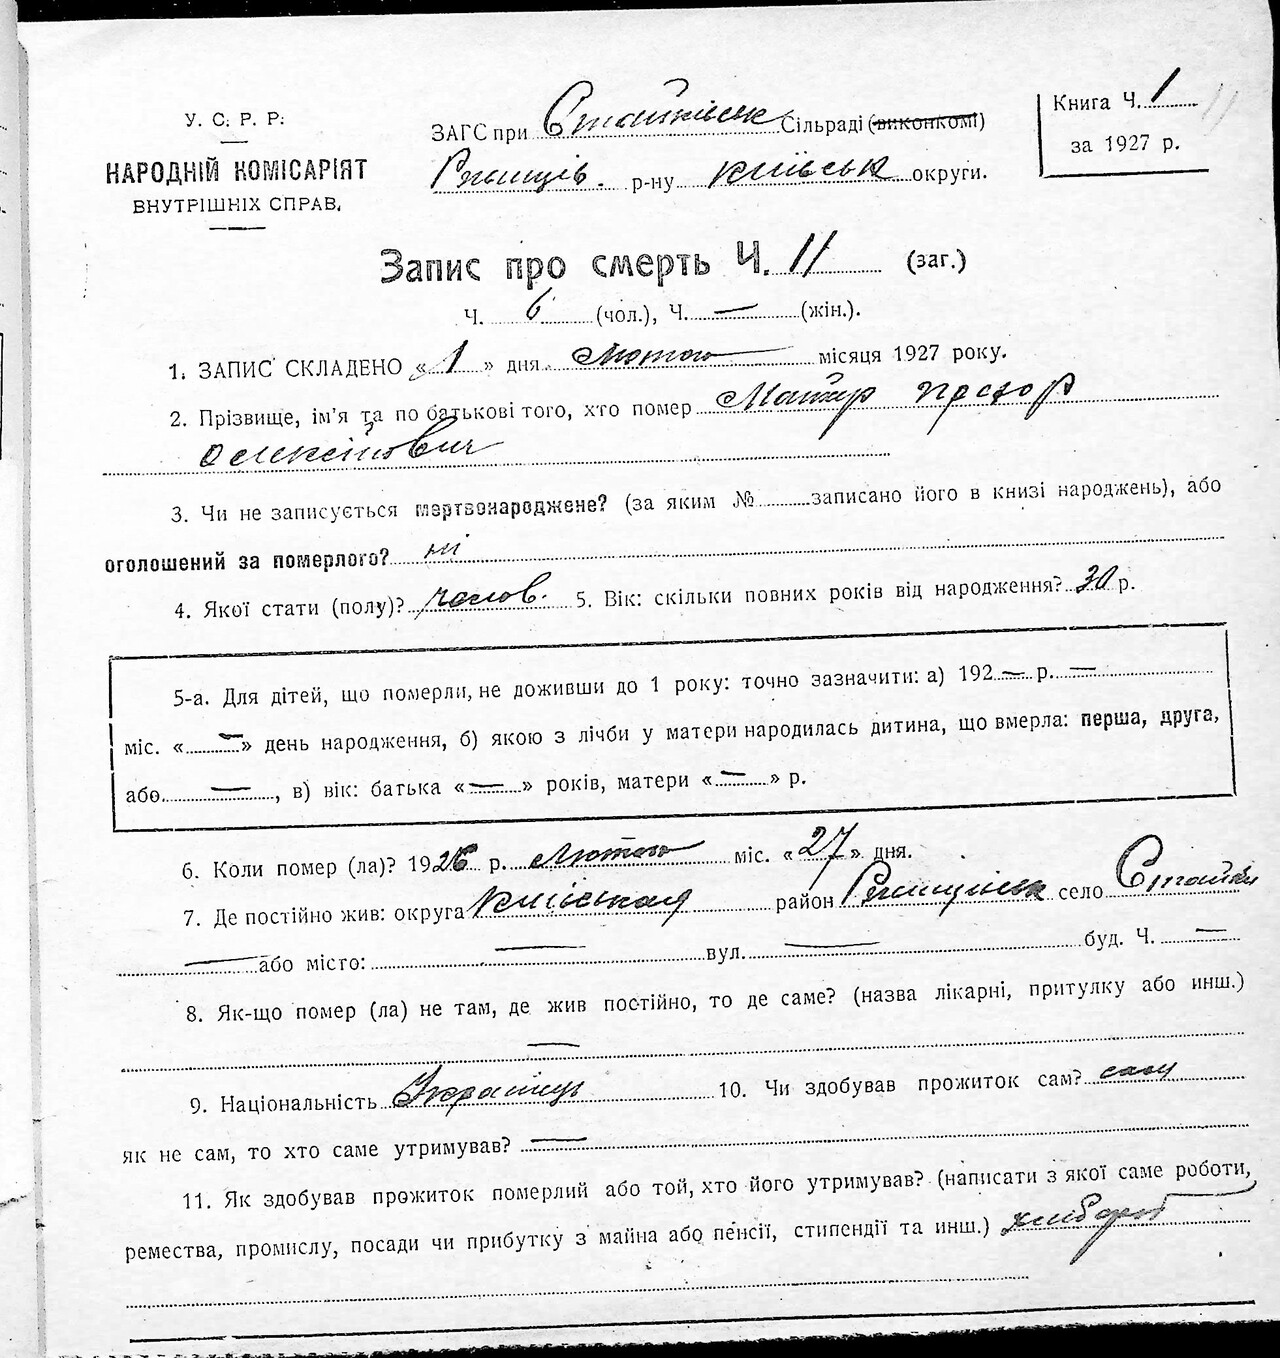 У. С. Р. Р.
НАРОДНІЙ КОМІСАРІЯТ
ВНУТРІШНІХ СПРАВ.
ЗАГС при Стайківськ Сільраді (виконкомі)
Ржищів. р-ну Київськ округи.
Книга Ч. 1
за 1927 р.
11
Запис про смерть Ч. 11 (заг.)
Ч. 6 (чол.), Ч. — (жін.).
1. ЗАПИС СКЛАДЕНО «1» дня Лютого місяця 1927 року.
2. Прізвище, ім'я та по батькові того, хто помер
Олексійович
3. Чи не записується мертвонароджене? (за яким № записано його в книзі народжень), або
оголошений за померлого? ні
4. Якої стати (полу)? чолов. 5. Вік: скільки повних років від народження? 30 р.
5-а. Для дітей, що померли, не доживши до 1 року: точно зазначити: а) 192 — р. —
міс. « — » день народження, б) якою з лічби у матери народилась дитина, що вмерла: перша, друга,
або — , в) вік: батька « — » років, матери « — » р.
6. Коли помер (ла)? 1926 р. Лютого міс. «27» дня.
7. Де постійно жив: округа Київская район Ржищівськ село Стайки
— або місто: — вул. — буд. Ч. —
8. Як-що помер (ла) не там, де жив постійно, то де саме? (назва лікарні, притулку або инш.)
—
9. Національність Українець 10. Чи здобував прожиток сам? сам
як не сам, то хто саме утримував? —
11. Як здобував прожиток померлий або той, хто його утримував? (написати з якої саме роботи,
ремества, промислу, посади чи прибутку з майна або пенсії, стипендії та инш.) хлібороб